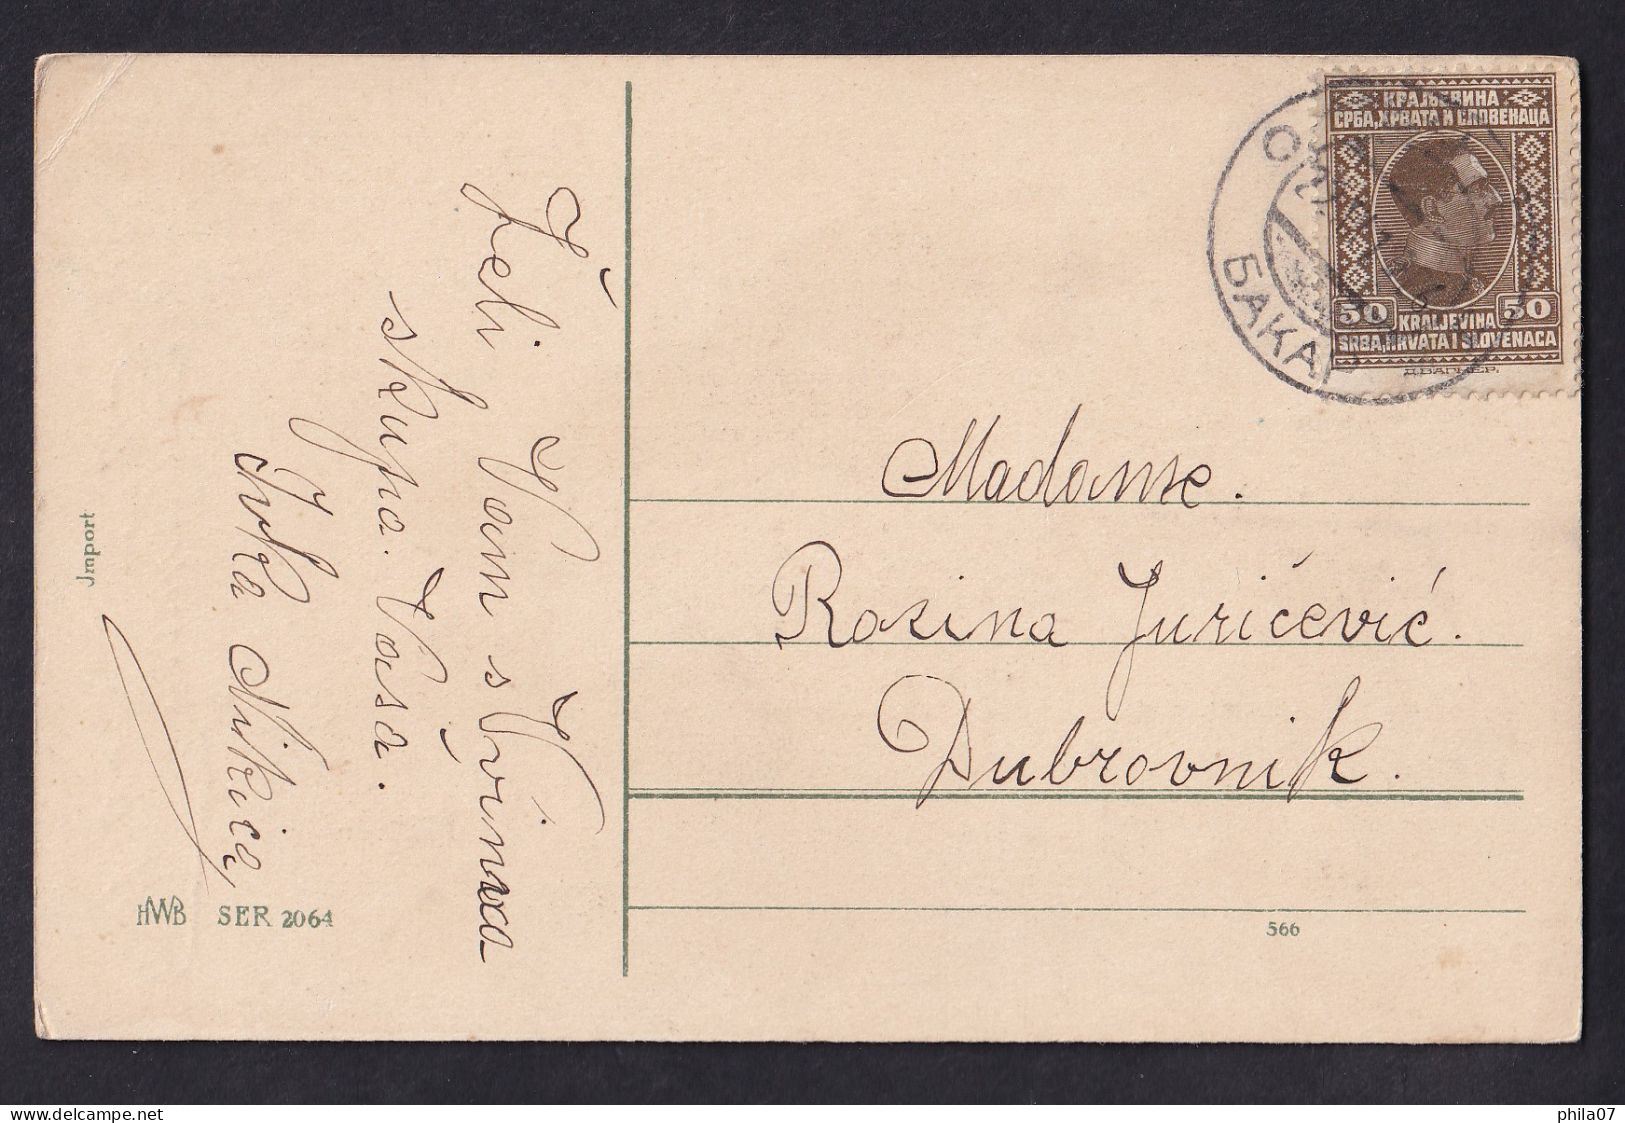 Želi Vam s Vrimxa
skupa. Vaša.
Ivka Nikica,
Jmport
HWB SER 2064
КРАЉЕВИНА
СРБА, ХРВАТА И СЛОВЕНАЦА
50 KRALJEVINA 50
SRBA, HRVATA I SLOVENACA
Д. ВАГНЕР.
БАКАР
Madame.
Rozina Juričević.
Dubrovnik.
566
phila07